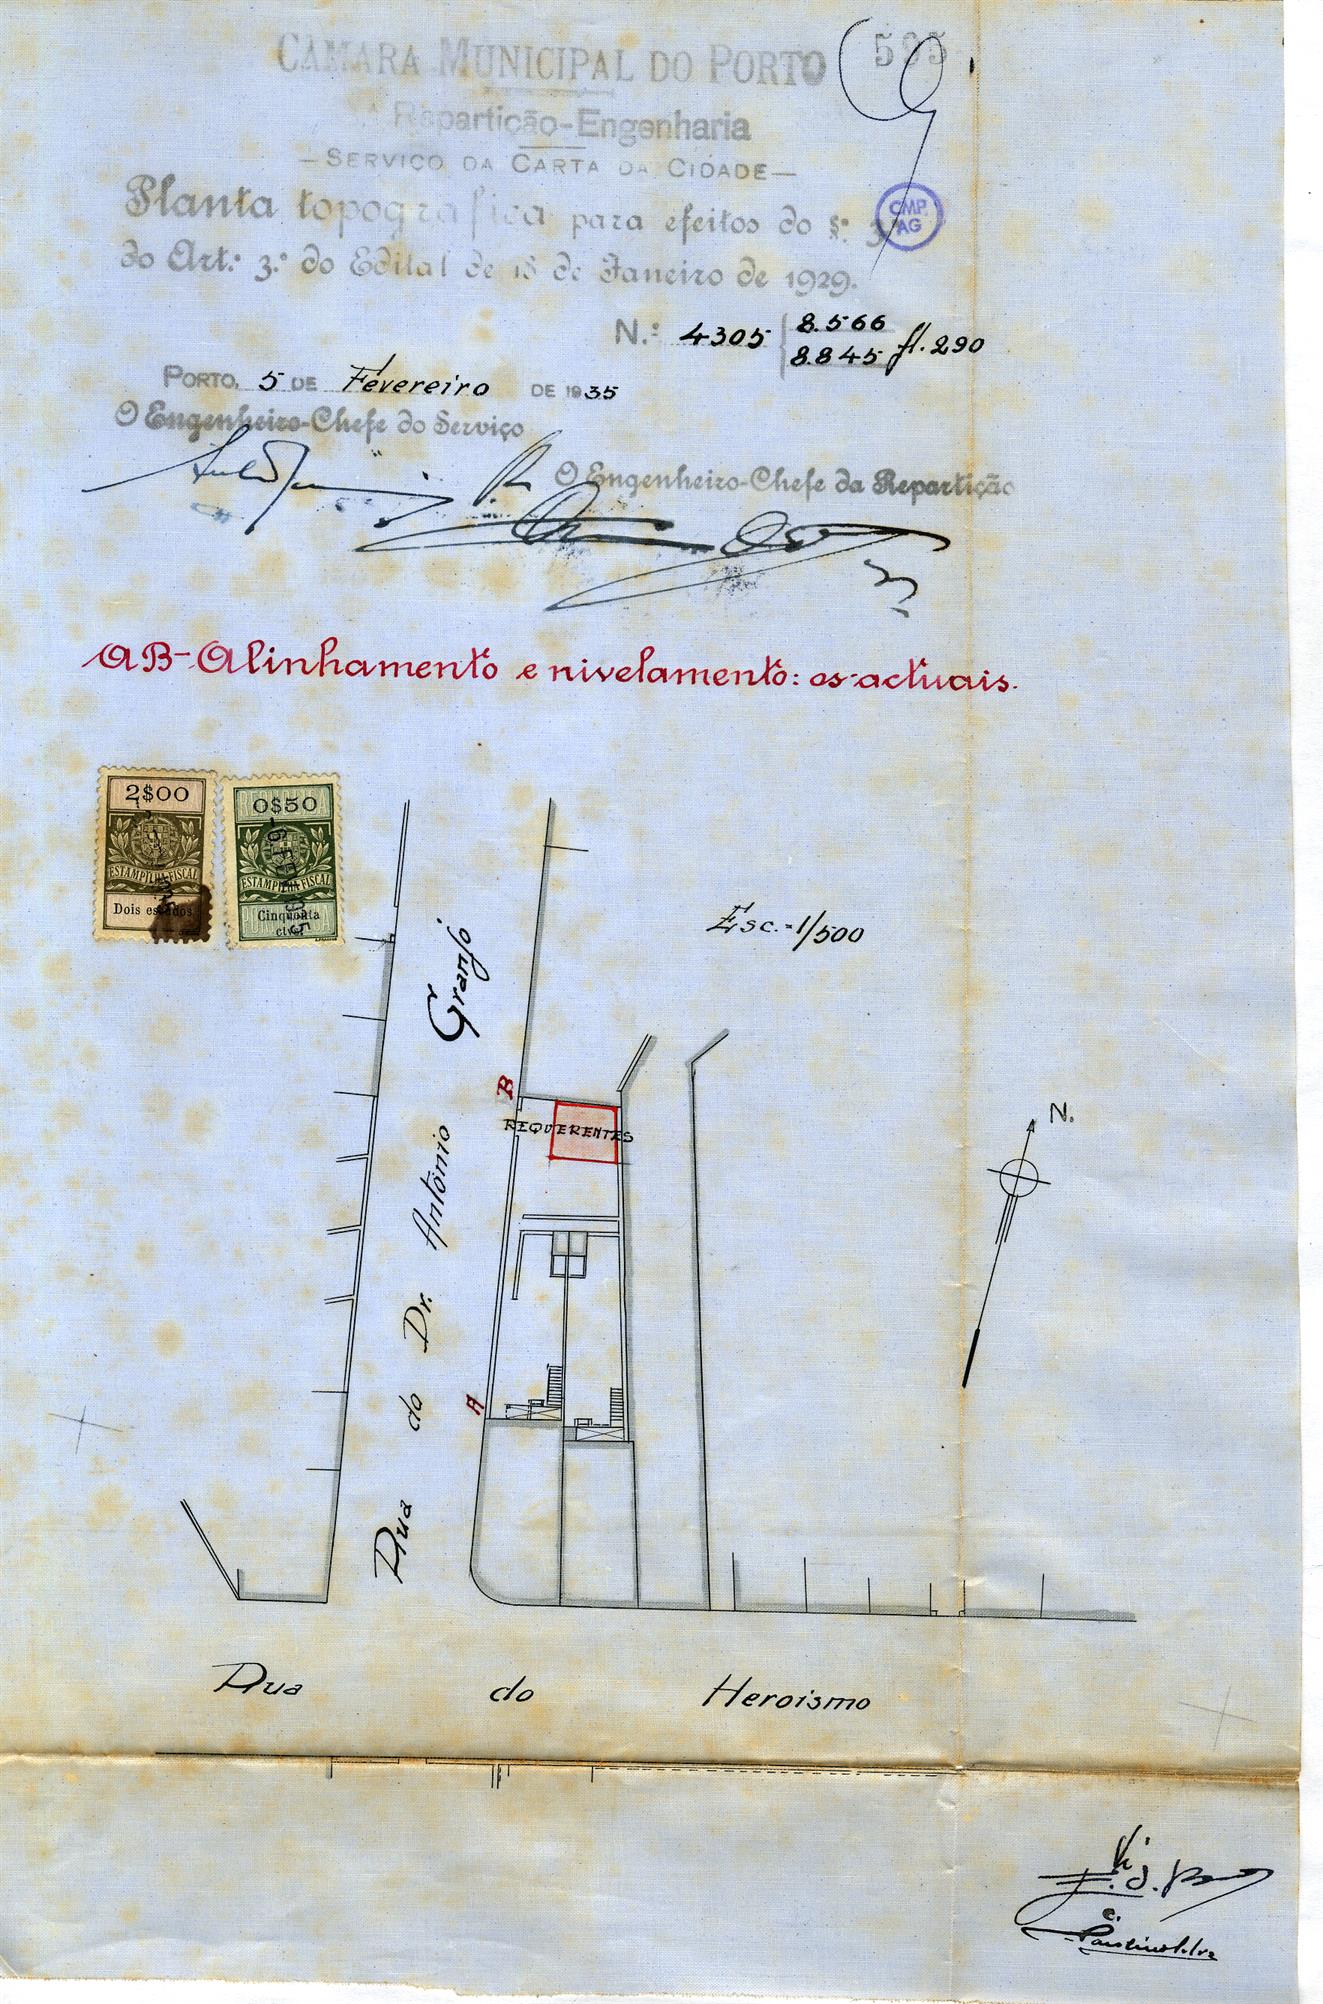 CÂMARA MUNICIPAL DO PORTO
595
Repartição-Engenharia
—SERVIÇO DA CARTA DA CIDADE—
Planta topografica para efeitos do §.º 3
CMP.
AG
do Art.º 3.º do Edital de 18 de Janeiro de 1929.
N.º 4305 8.566
8.845 fl. 290
PORTO, 5 DE Fevereiro DE 1935
O Engenheiro-Chefe do Serviço
O Engenheiro-Chefe da Repartição
AB-Alinhamento e nivelamento: os actuais.
2$00
ESTAMPILHA FISCAL
Dois escudos
0$50
ESTAMPILHA FISCAL
Cinquenta
ctvs.
Esc.=1/500
Rua do Dr. António Granjo
B
REQUERENTES
N.
A
Rua do Heroismo